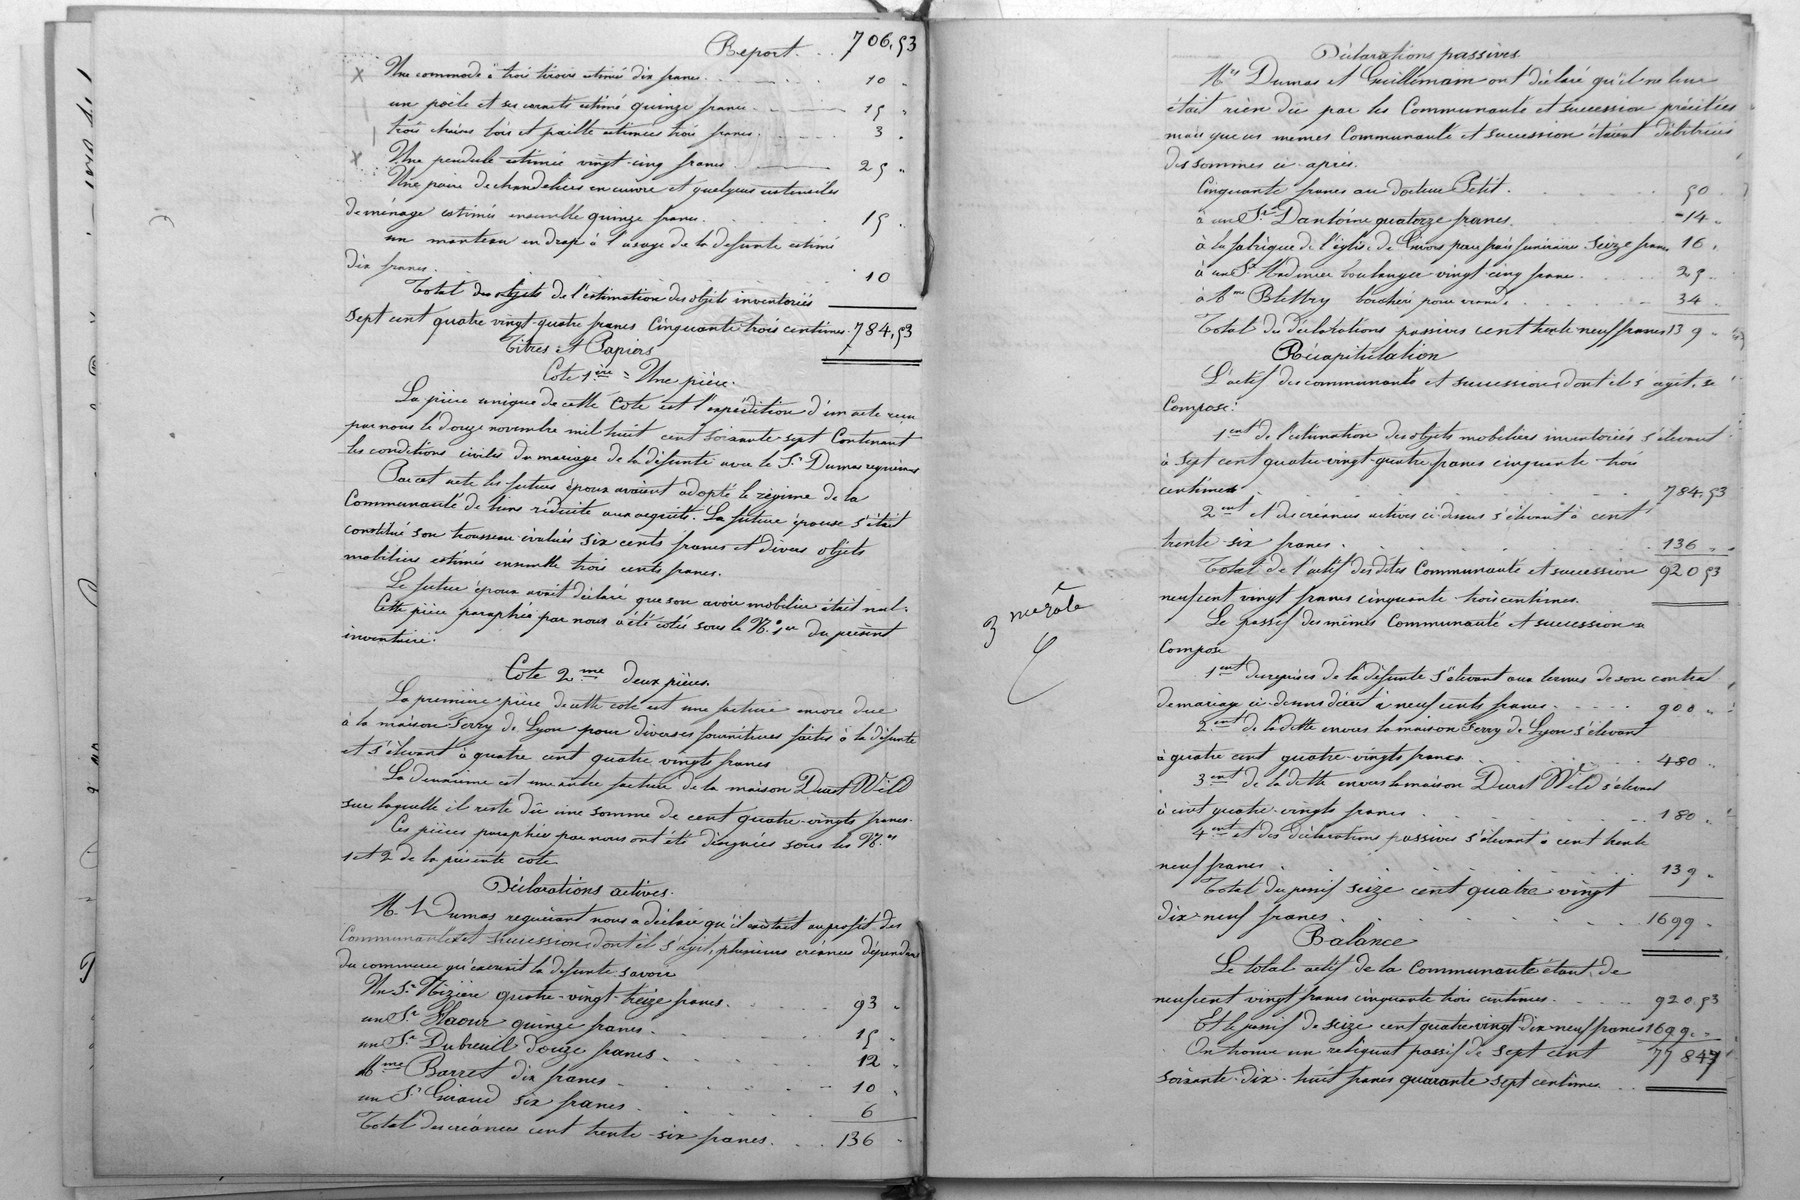 Report. . . 706,53
Une commode à trois tiroirs estimé dix francs. 10 "
un poële et ses cornets estimé quinze francs 15 "
trois chaises bois et paille estimées trois francs. 3 "
Une pendule estimée vingt-cinq francs 25 "
Une paire de chandeliers en cuivre et quelques ustensiles
de ménage estimés ensemble quinze francs. 15 "
un manteau en drap à l'usage de la défunte estimé
dix francs. 10
Total des objets de l'estimation des objets inventoriés
sept cent quatre vingt-quatre francs Cinquante trois centimes. 784,53
Titres et Papiers
Cote 1ère = Une pièce.
La pièce unique de cette Cote est l'expédition d'un acte reçu
par nous le douze novembre mil huit cent soixante sept Contenant
les conditions civiles du mariage de la défunte avec le Sr Dumas requérant
Par cet acte les futurs époux avaient adopté le régime de la
Communauté de biens réduite aux acquêts. La future épouse s'était
constitué son trousseau évalué six cents francs et divers objets
mobiliers estimés ensemble trois cents francs.
Le futur époux avait déclaré que son avoir mobilier était nul.
Cette pièce paraphée par nous a été cotée sous le No 1er du présent
inventaire.
Cote 2me deux pièces.
La première pièce de cette cote est une facture encore due
à la maison Ferry de Lyon pour diverses fournitures faites à la défunte
et s'élevant à quatre cent quatre vingts francs
La deuxième est une autre facture de la maison Durst Wild
sur laquelle il reste dû une somme de cent quatre-vingts francs.
Ces pièces paraphées par nous ont été désignées sous les Nos
1 et 2 de la présente cote
Déclarations actives.
M. Dumas requérant nous a déclaré qu'il existait au profit des
Communauté et succession dont il s'agit, plusieurs créances dépendant
du commerce qu'exerçait la défunte savoir
Un Sr Nizière quatre-vingt-treize francs. 93 "
un Sr Haour quinze francs. 15 "
un Sr Dubreuil douze francs. 12 "
Mme Barret dix francs 10 "
un Sr Giraud six francs. 6
Total des créances cent trente-six francs. 136 "
Déclarations passives.
Mrs Dumas et Guillimam ont déclaré qu'il ne leur
était rien dû par les Communauté et succession précitées
mais que ces mêmes Communauté et succession étaient débitrices
des sommes ci-après.
Cinquante francs au docteur Petit. 50
à un Sr Dantoine quatorze francs. 14 "
à la fabrique de l'église de Givors pour frais funéraires seize francs 16 "
à un Sr boulanger vingt-cinq francs. 25 "
à Mme Blettry bouchère pour viande 34
Total des déclarations passives cent trente-neuf francs 139 "
Récapitulation
L'actif des communauté et succession dont il s'agit, se
Compose:
1ent de l'estimation des objets mobiliers inventoriés s'élevant
à sept cent quatre-vingt-quatre francs cinquante trois
centimes. 784,53
2ent et des créances actives ci-dessus s'élevant à cent
trente-six francs. 136 "
Total de l'actif des dites Communauté et succession 920,53
neuf cent vingt francs cinquante trois centimes.
Le passif des mêmes Communauté et succession se
Compose
1ent des reprises de la défunte s'élevant aux termes de son contrat
de mariage ci-dessus décrit à neuf cents francs. 900 "
2ent de la dette envers la maison Ferry de Lyon s'élevant
à quatre cent quatre-vingts francs. 480 "
3ent de la dette envers la maison Durst Wild s'élevant
à cent quatre-vingts francs 180 "
4ent et des déclarations passives s'élevant à cent trente
neuf francs. 139 "
Total du passif seize cent quatre vingt
dix-neuf francs. 1699 "
Balance
Le total actif de la Communauté étant de
neuf cent vingt francs cinquante trois centimes. 920,53
Et le passif de seize cent quatre vingt dix neuf francs 1699 "
On trouve un reliquat passif de sept cent 77847
soixante-dix-huit francs quarante sept centimes.